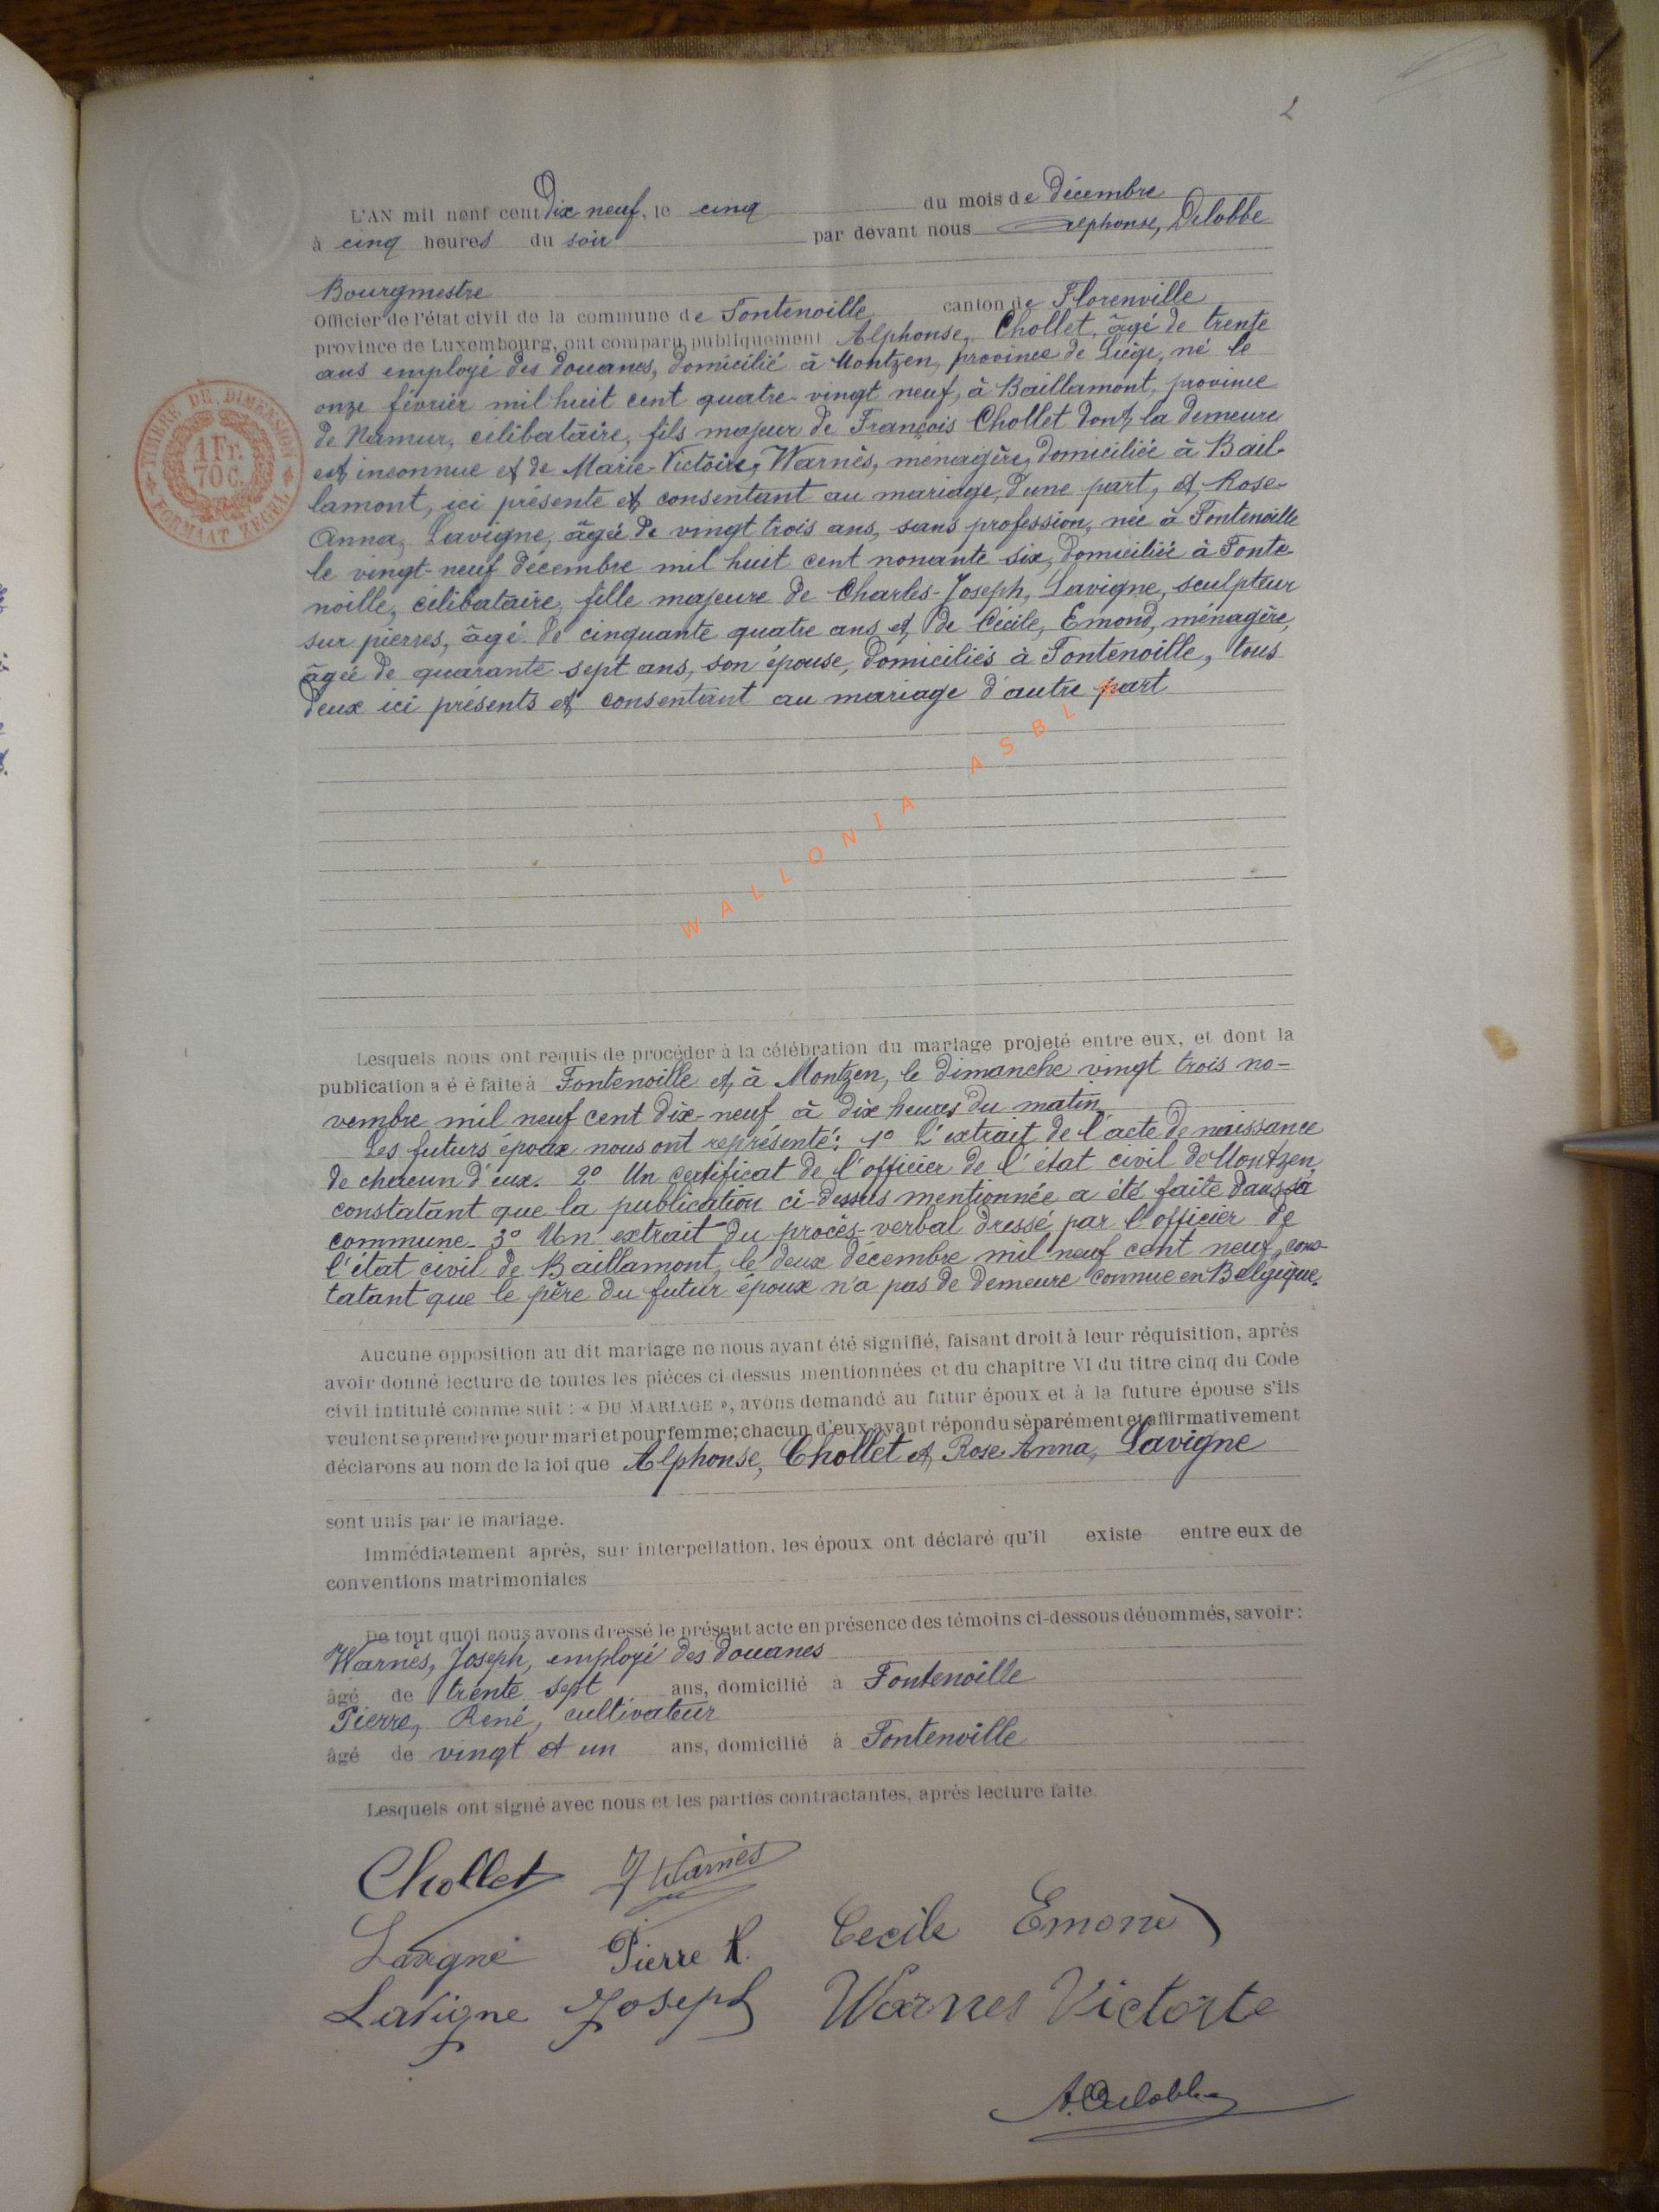 2
L'AN mil neuf cent Dix neuf, le cinq du mois de Décembre
à cinq heures du soir par devant nous Alphonse, Delobbe
Bourgmestre
Officier de l'état civil de la commune de Fontenoille canton de Florenville
province de Luxembourg, ont comparu publiquement Alphonse, Chollet, âgé de trente
ans employé des douanes, domicilié à Montzen, province de Liège, né le
onze février mil huit cent quatre-vingt neuf, à Baillamont, province
de Namur, célibataire, fils majeur de François Chollet dont la demeure
est inconnue et de Marie-Victoire, Warnès, ménagère, domiciliée à Bail-
lamont, ici présente et consentant au mariage, d'une part, et, Rose-
Anna, Lavigne, âgée de vingt trois ans, sans profession, née à Fontenoille
le vingt-neuf décembre mil huit cent nonante six, domiciliée à Fonte-
noille, célibataire, fille majeure de Charles-Joseph, Lavigne, sculpteur
sur pierres, âgé de cinquante quatre ans et de Cécile, Emond, ménagère,
âgée de quarante sept ans, son épouse, domiciliés à Fontenoille, tous
deux ici présents et consentant au mariage d'autre part
TIMBRE DE DIMENSION
1 Fr.
70 C.
FORMAAT ZEGEL
WALLONIA ASBL
Lesquels nous ont requis de procéder à la célébration du mariage projeté entre eux, et dont la
publication a é é faite à Fontenoille et, à Montzen, le dimanche vingt trois no-
vembre mil neuf cent dix-neuf à dix heures du matin
Les futurs époux nous ont représenté: 1° L'extrait de l'acte de naissance
de chacun d'eux. 2° Un certificat de l'officier de l'état civil de Montzen,
constatant que la publication ci-dessus mentionnée a été faite dans sa
commune. 3° Un extrait du procès-verbal dressé par l'officier de
l'état civil de Baillamont, le deux décembre mil neuf cent neuf, cons-
tatant que le père du futur époux n'a pas de demeure connue en Belgique.
Aucune opposition au dit mariage ne nous ayant été signifié, faisant droit à leur réquisition, après
avoir donné lecture de toutes les pièces ci dessus mentionnées et du chapitre VI du titre cinq du Code
civil intitulé comme suit : « DU MARIAGE », avons demandé au futur époux et à la future épouse s'ils
veulent se prendre pour mari et pour femme; chacun d'eux ayant répondu séparément et affirmativement
déclarons au nom de la loi que Alphonse, Chollet et, Rose Anna, Lavigne
sont unis par le mariage.
Immédiatement après, sur interpellation, les époux ont déclaré qu'il existe entre eux de
conventions matrimoniales
De tout quoi nous avons dressé le présent acte en présence des témoins ci-dessous dénommés, savoir :
Warnès, Joseph, employé des douanes
âgé de trente sept ans, domicilié à Fontenoille
Pierre, René, cultivateur
âgé de vingt et un ans, domicilié à Fontenoille
Lesquels ont signé avec nous et les parties contractantes, après lecture faite.
Chollet J Warnès
Lavigne Pierre R. Cecile Emond
Lavigne Joseph Warnes Victorte
A. Delobbe